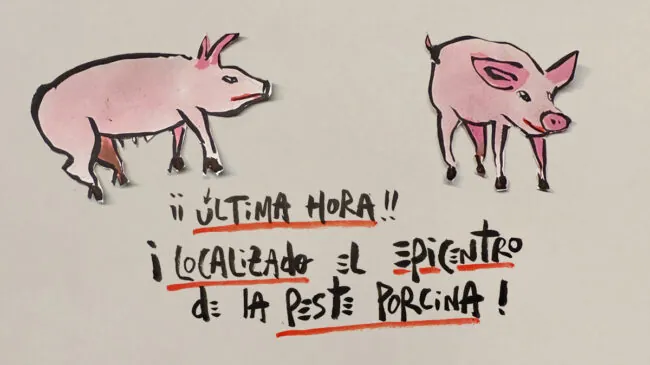 ¡¡ ÚLTIMA HORA !!
¡ LOCALIZADO EL EPICENTRO
de LA PESTE PORCINA !